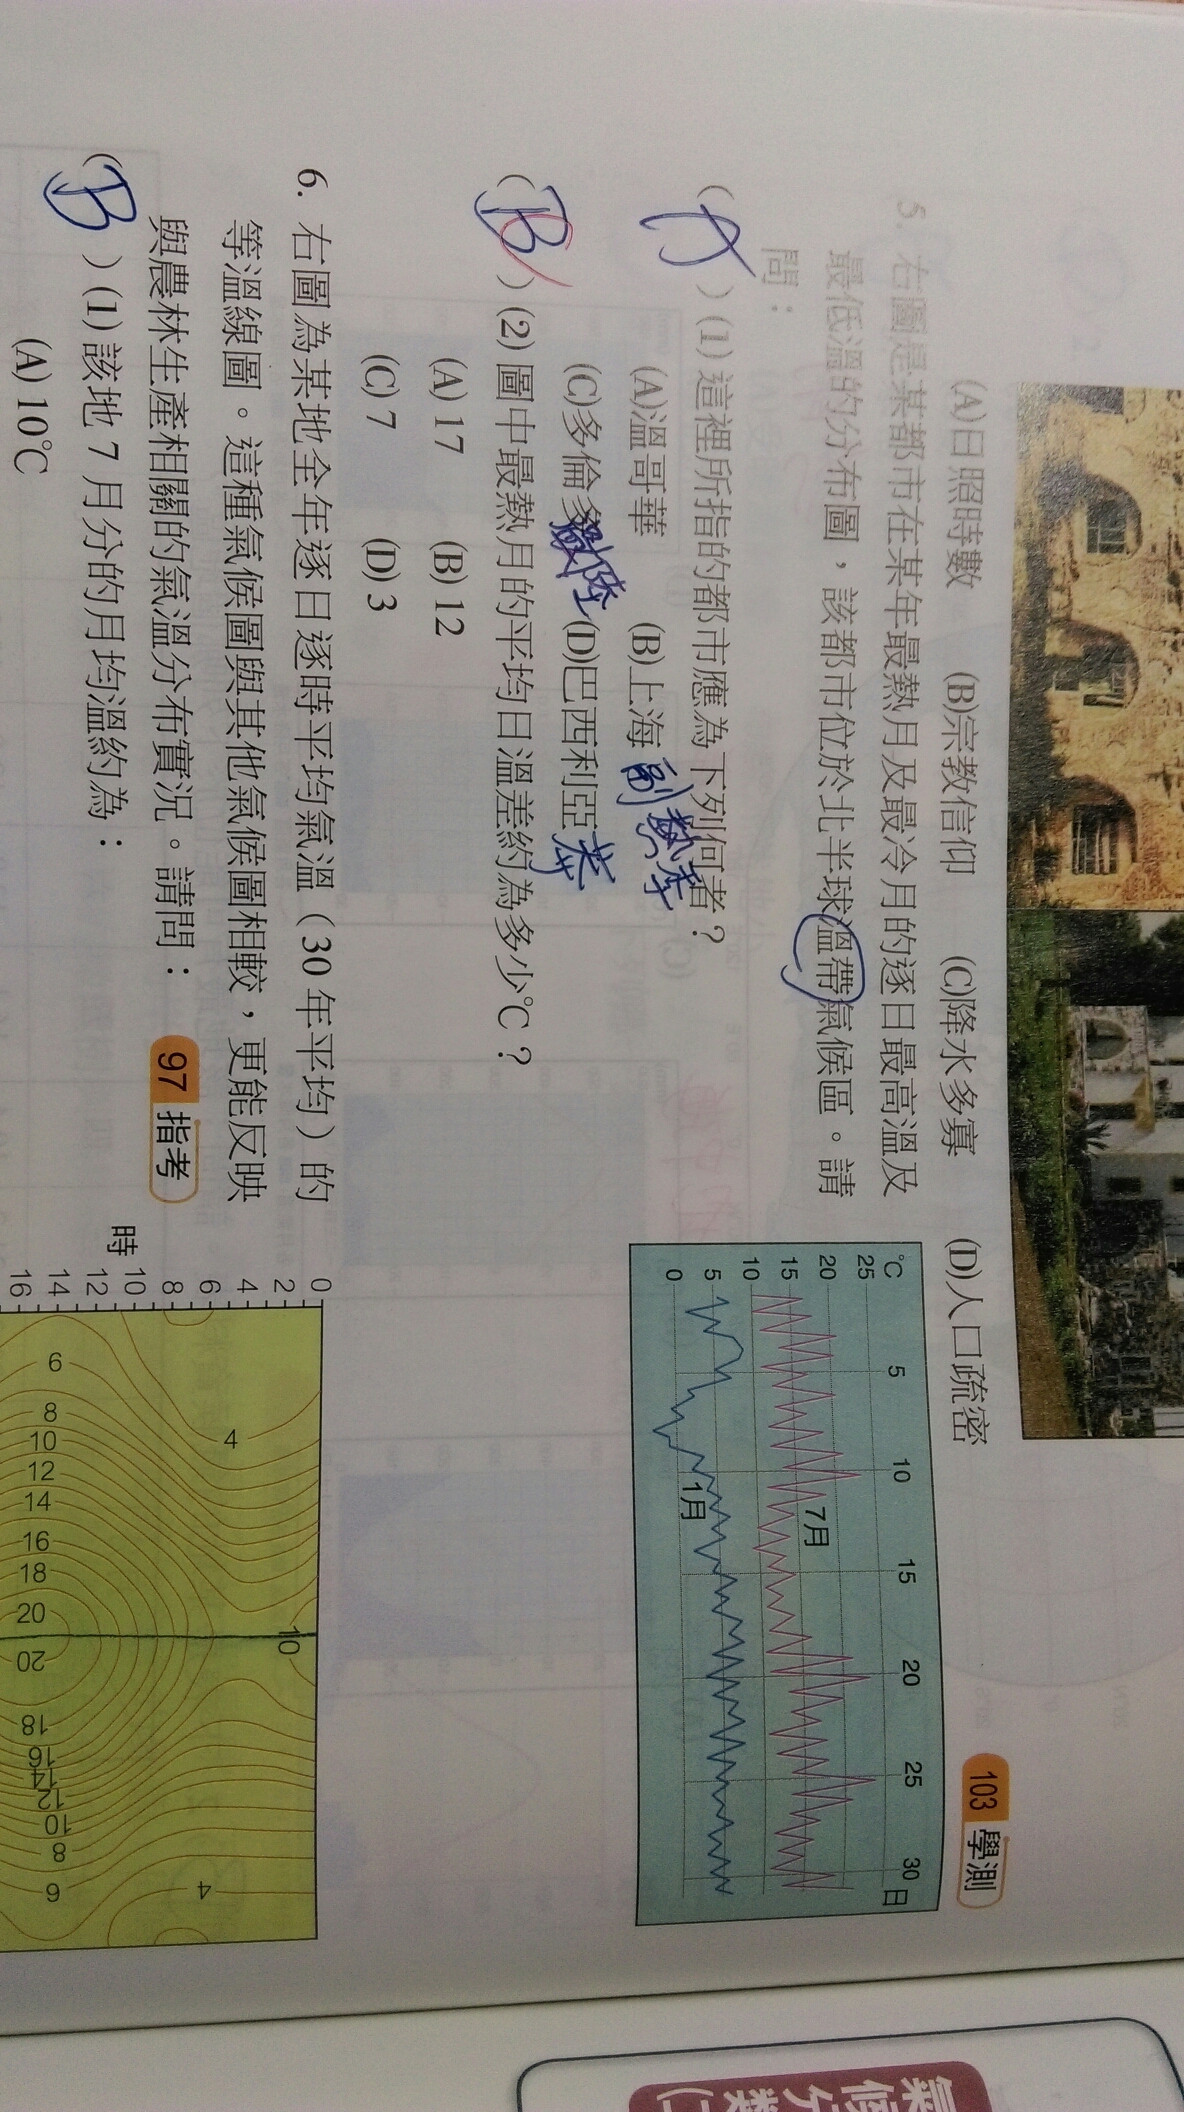 (A)日照時數 (B)宗教信仰 (C)降水多寡 (D)人口疏密
5. 右圖是某都市在某年最熱月及最冷月的逐日最高溫及
最低溫的分布圖，該都市位於北半球溫帶氣候區。請
問：
103 學測
(A)(1)這裡所指的都市應為下列何者？
(A)溫哥華 (B)上海 副熱季
(C)多倫多 溫陸 (D)巴西利亞 熱莽
(B)(2)圖中最熱月的平均日溫差約為多少℃？
(A) 17 (B) 12
(C) 7 (D) 3
℃ 5 10 15 20 25 30 日
25
20
15
10
5
0
7月
1月
6. 右圖為某地全年逐日逐時平均氣溫（30 年平均）的
等溫線圖。這種氣候圖與其他氣候圖相較，更能反映
與農林生產相關的氣溫分布實況。請問：
97 指考
(B)(1)該地 7 月分的月均溫約為：
(A) 10℃
時
0
2
4
6
8
10
12
14
16
10
4 4
6 8 10 12 14 16 18 20 20 18 16 14 12 10 8 6
氣候分類